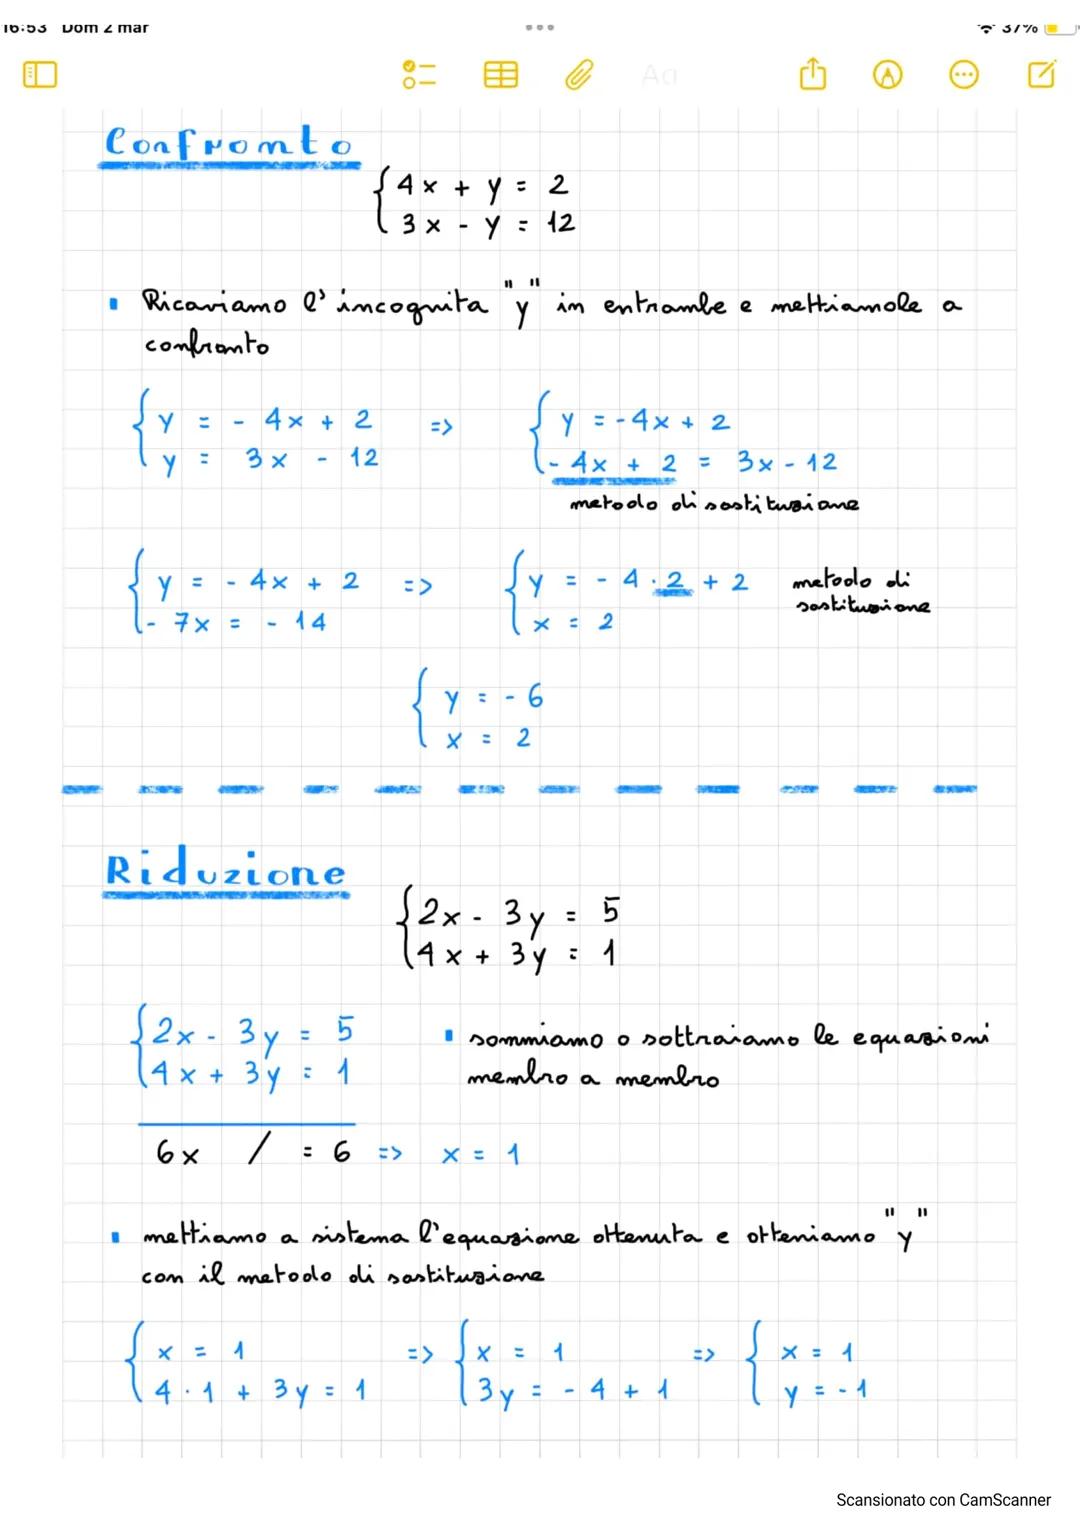 16:53 Dom 2 mar
37%
Aa
Confronto
4x + y = 2
3x - y = 12
Ricaviamo l'incognita "y" in entrambe e mettiamole a
confronto
y = - 4x + 2 => y = -4x + 2
y = 3x - 12 - 4x + 2 = 3x - 12
metodo di sostituzione
y = - 4x + 2 => y = - 4 · 2 + 2 metodo di
- 7x = - 14 x = 2 sostituzione
y = - 6
x = 2
Riduzione
2x - 3y = 5
4x + 3y = 1
2x - 3y = 5 sommiamo o sottraiamo le equazioni
4x + 3y = 1 membro a membro
6x / = 6 => x = 1
mettiamo a sistema l'equazione ottenuta e otteniamo "y"
con il metodo di sostituzione
x = 1 => x = 1 => x = 1
4 · 1 + 3y = 1 3y = - 4 + 1 y = - 1
Scansionato con CamScanner